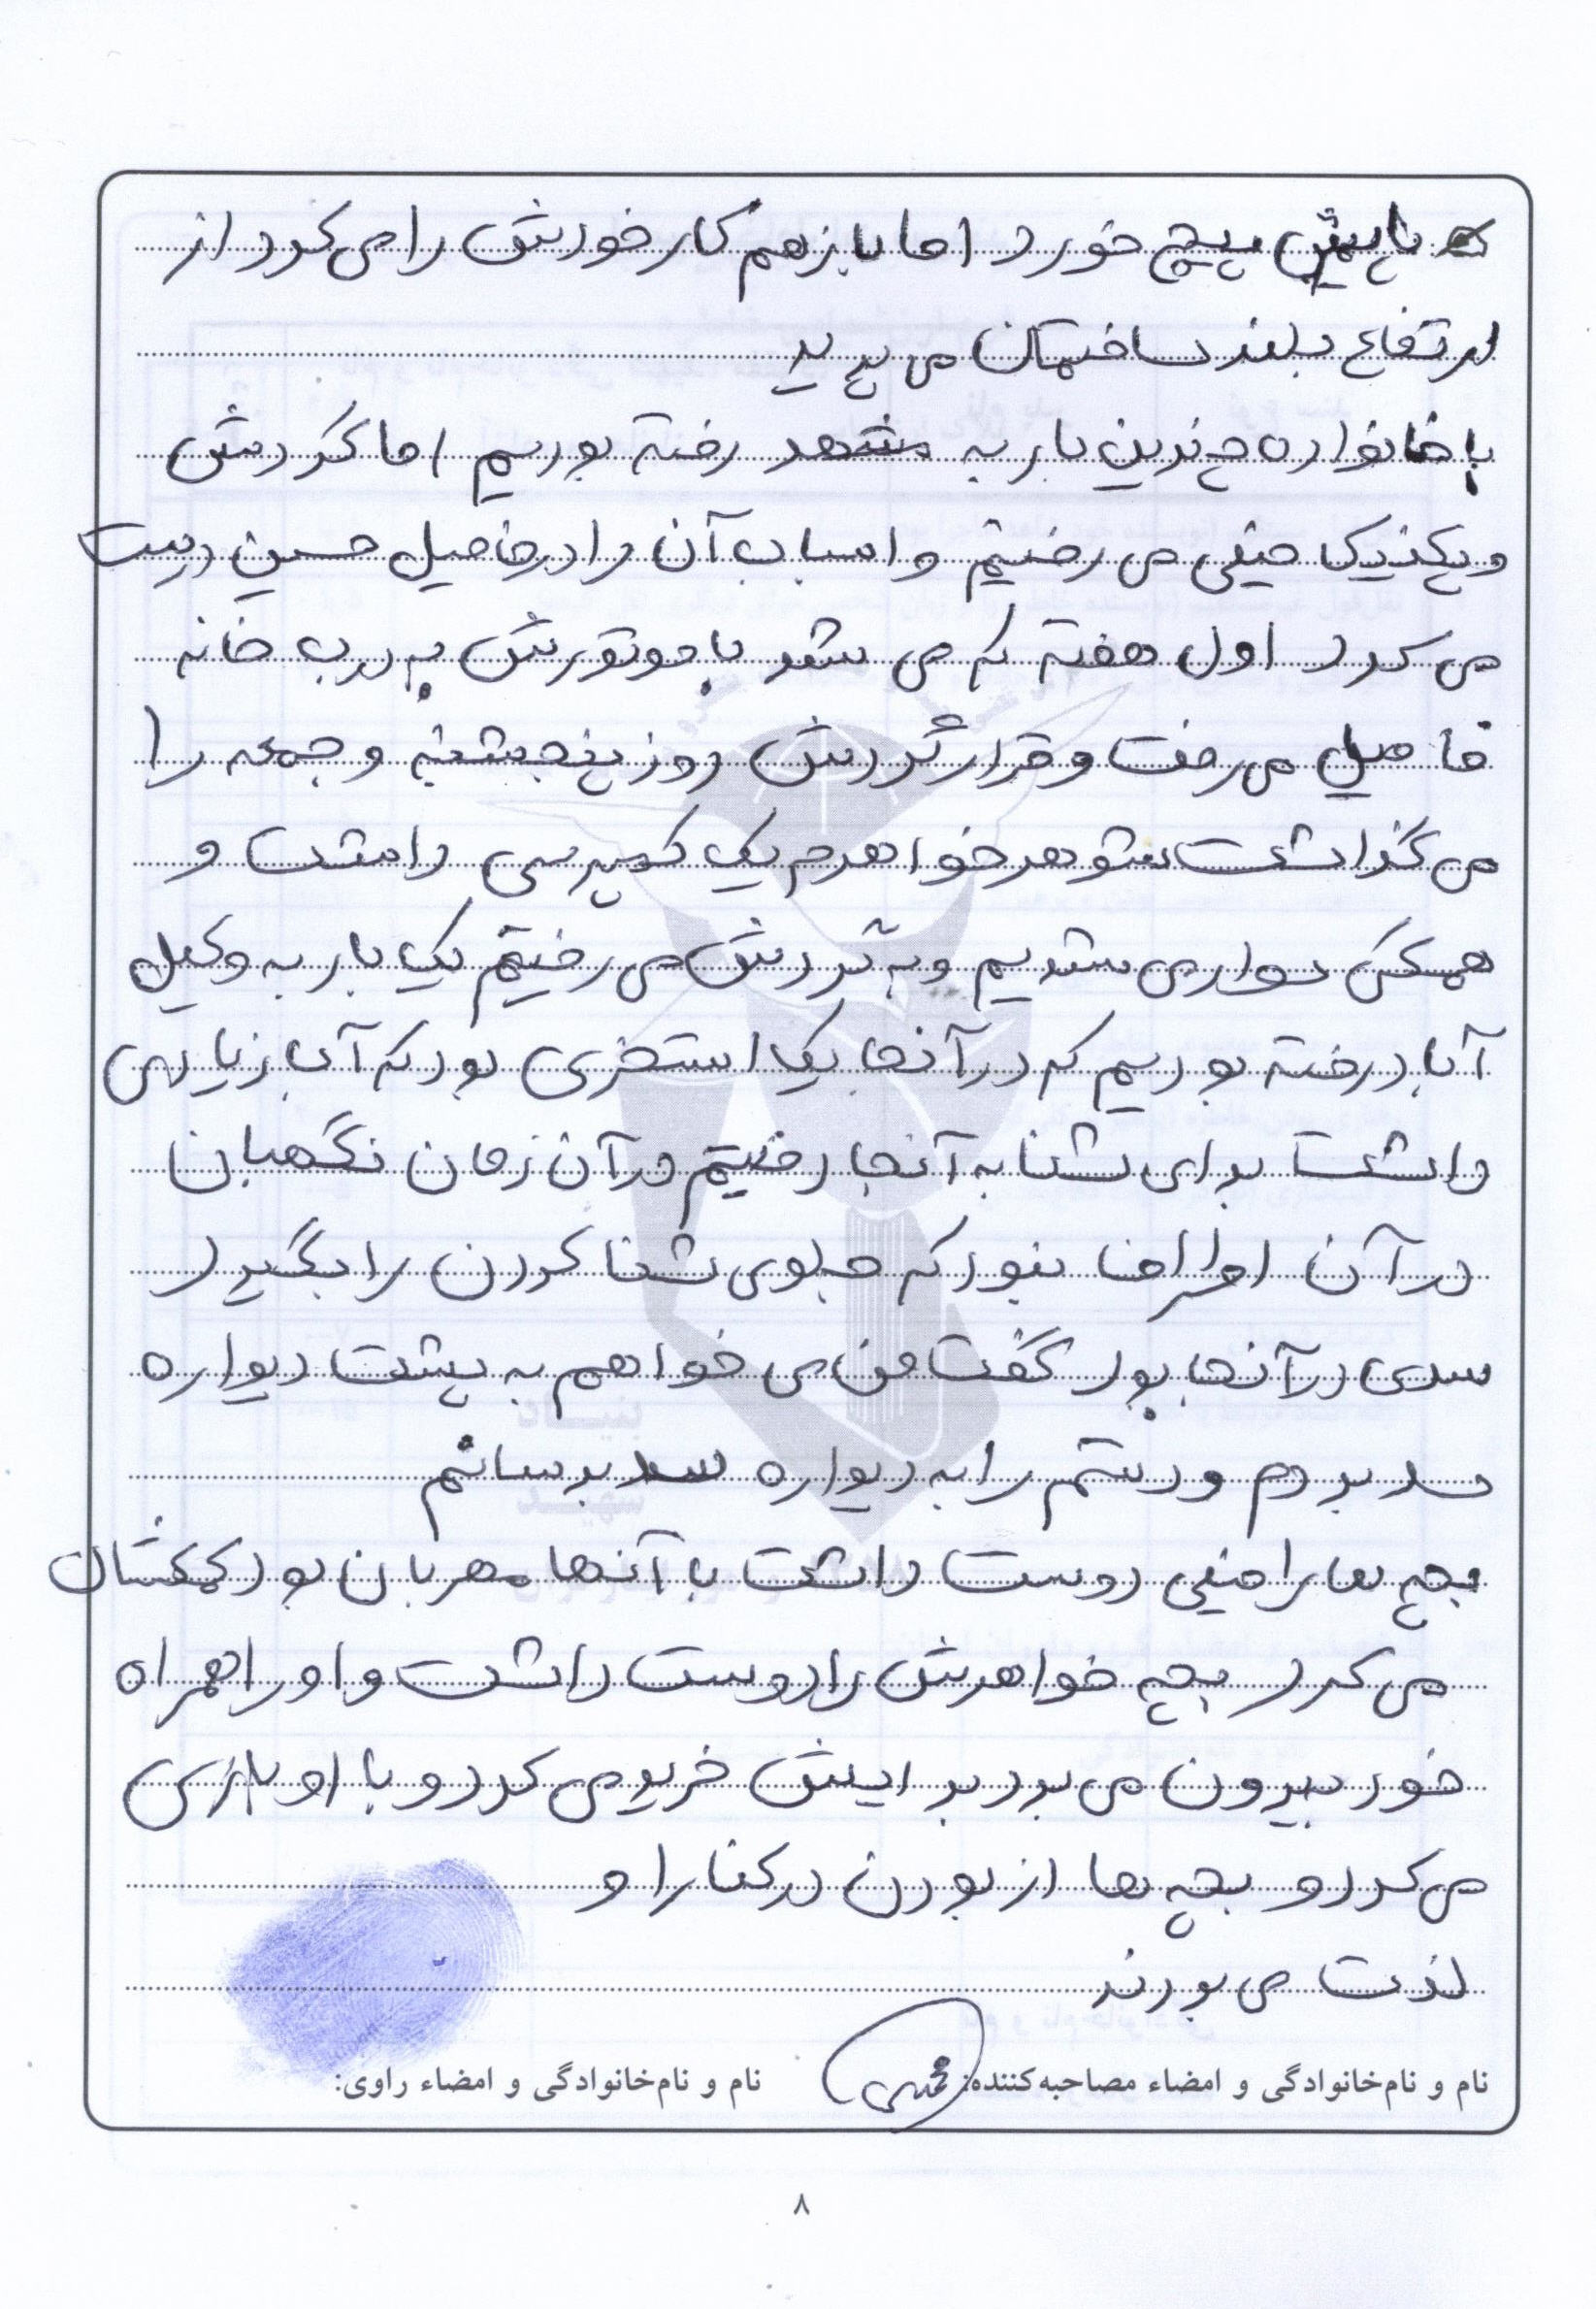 که پایش پیچ خورد اما باز هم کار خودش را می کرد از
ارتفاع بلند ساختمان می پرید
با خانواده چندین بار به مشهد رفته بودیم اما گردش
و پیکنیک خیلی می رفتیم و اسباب آن را در فامیل حسین درست
می کرد اول هفته که می شد با موتورش به درب خانه
فامیل می رفت و قرار گردش روز پنجشنبه و جمعه را
می گذاشت شوهر خواهرم یک کمپرسی داشت و
همگی سوار می شدیم و به گردش می رفتیم یک بار به وکیل
آباد رفته بودیم که در آنجا یک استخری بود که آب زیادی
داشت برای شنا به آنجا رفتیم در آن زمان نگهبان
در آن اطراف نبود که جلوی شنا کردن را بگیرد
سدی در آنجا بود گفت من می خواهم به پشت دیواره
سد بروم و دستم را به دیواره سد برسانم
بچه ها را خیلی دوست داشت با آنها مهربان بود کمکشان
می کرد بچه خواهرش را دوست داشت و او را همراه
خود بیرون می برد برایش خرید می کرد و با او بازی
می کرد و بچه ها از بودن در کنار او
لذت می بردند
نام و نام‌خانوادگی و امضاء مصاحبه‌کننده:
نام و نام‌خانوادگی و امضاء راوی:
۸